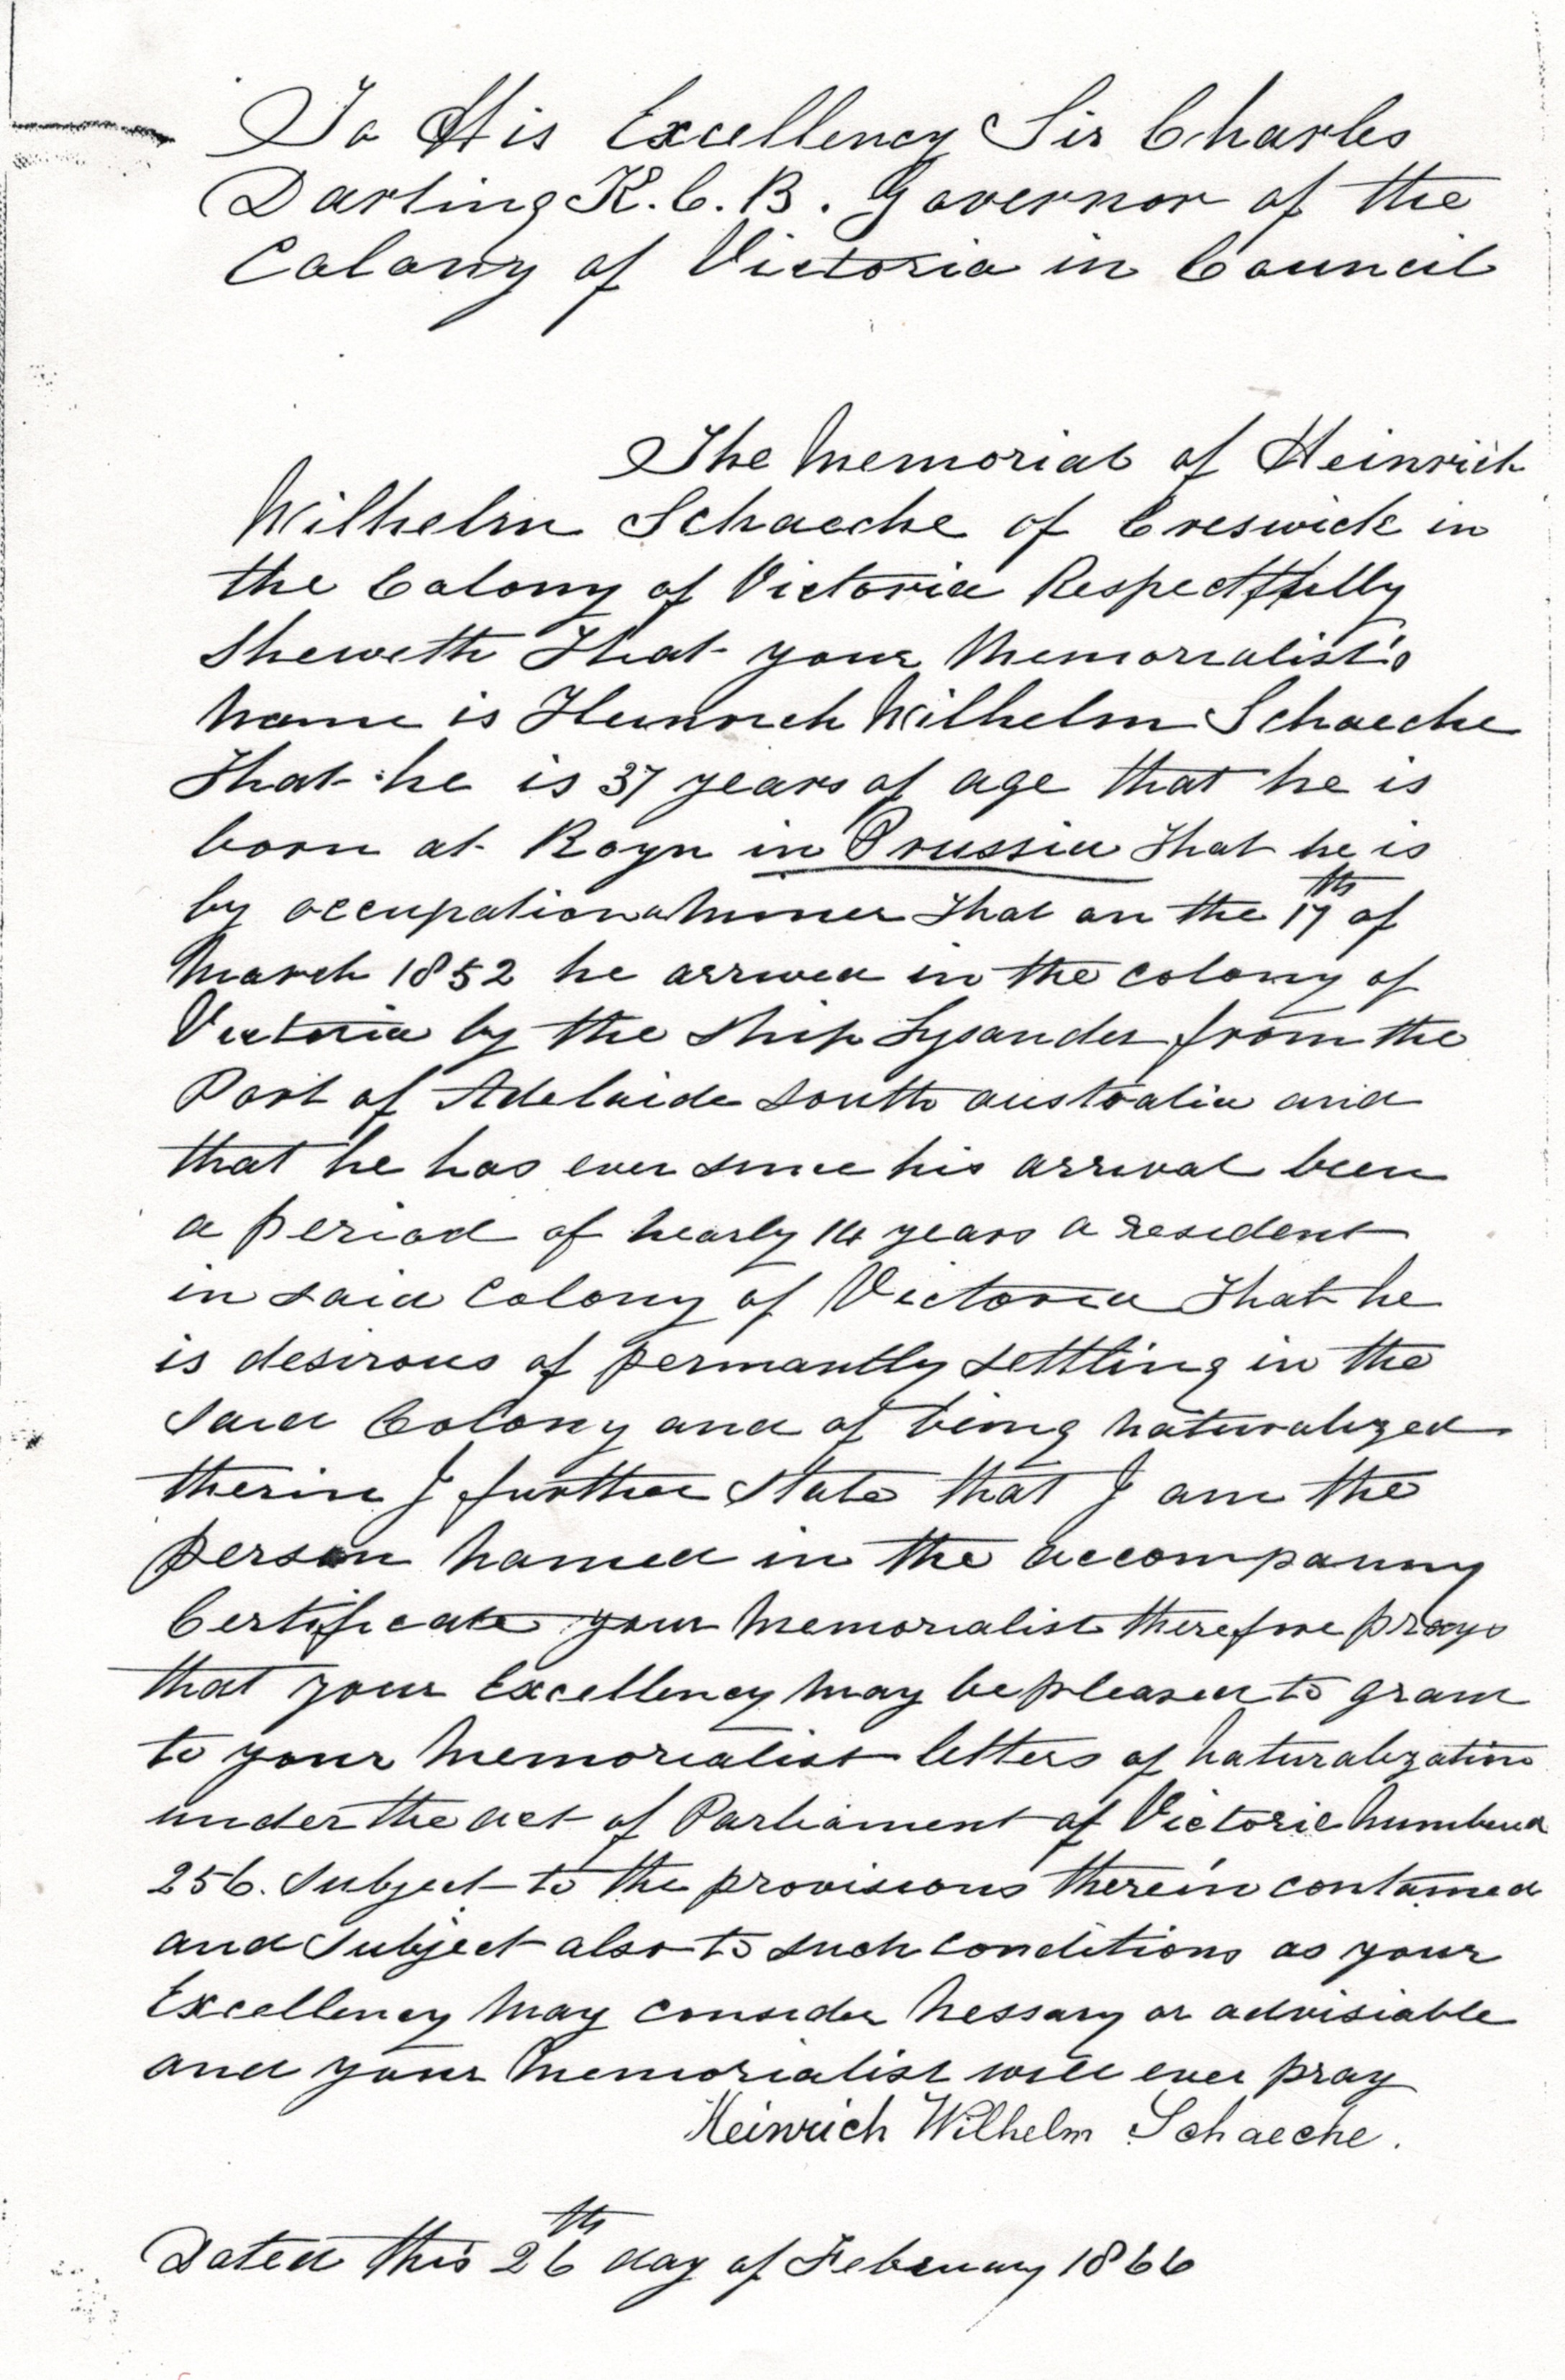 To His Excellency Sir Charles
Darling K.C.B. Governor of the
Colony of Victoria in Council
The Memorial of Heinrich
Wilhelm Schaeche of Creswick in
the Colony of Victoria Respectfully
Sheweth That your Memorialist's
Name is Heinrich Wilhelm Schaeche
That he is 37 years of age that he is
born at Royn in Prussia That he is
by occupation a Miner That on the 17th of
March 1852 he arrived in the colony of
Victoria by the Ship Lysander from the
Port of Adelaide South australia and
that he has ever since his arrival been
a period of nearly 14 years a resident
in said Colony of Victoria That he
is desirous of permantly settling in the
said Colony and of being naturalized
therin I further State that I am the
person named in the accompanny
Certificate your Memorialist therefore prays
that your Excellency May be pleased to grant
to your Memorialist letters of Naturalization
under the act of Parliament of Victoria Numbered
256. Subject to the provisions therein contained
and Subject also to such conditions as your
Excellency May consider Nessary or advisiable
and your Memorialist will ever pray
Heinrich Wilhelm Schaeche.
Dated this 26th day of February 1866